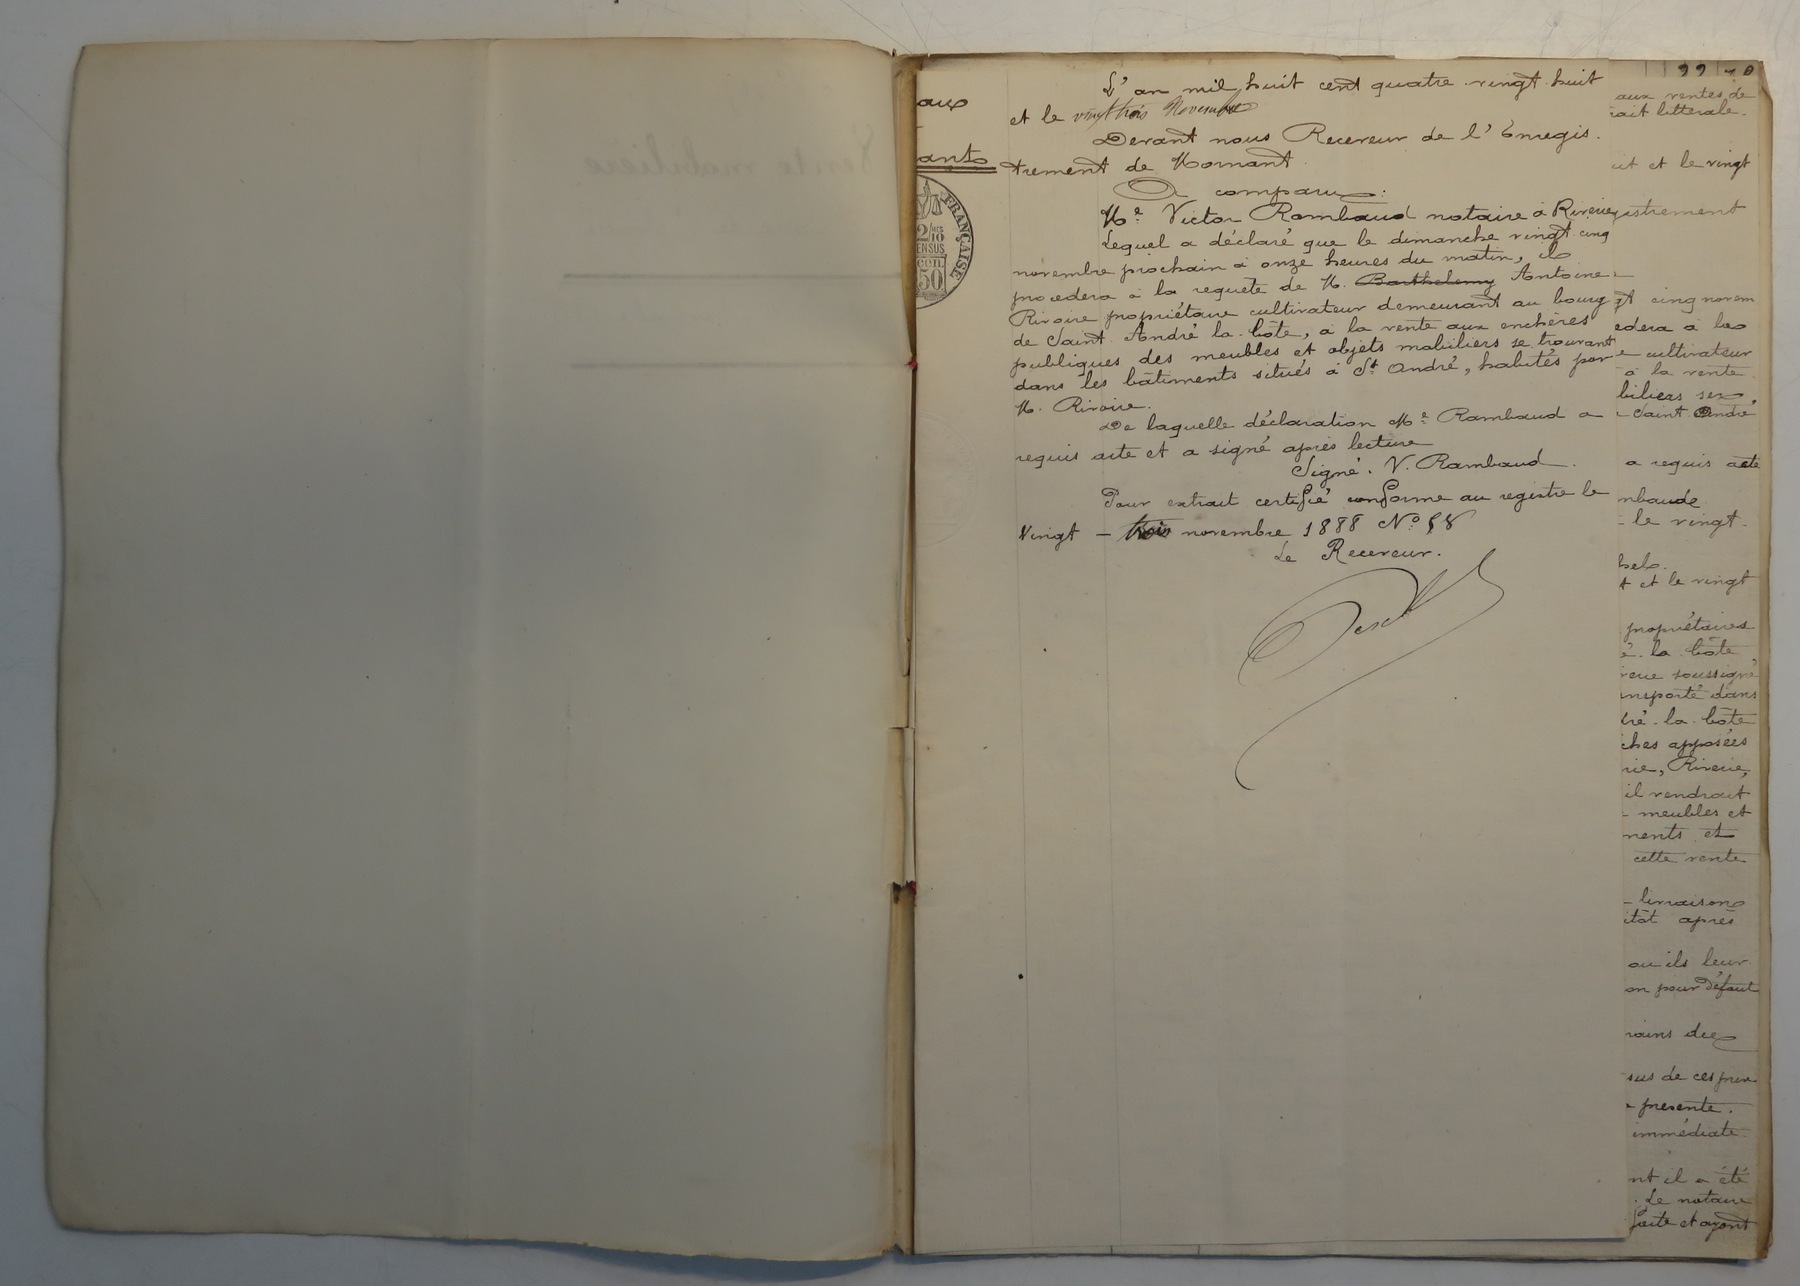 L'an mil huit cent quatre vingt huit
et le vingt trois Novembre
Devant nous Receveur de l'Enregis.
trement de Mornant.
A comparu :
Me Victor Rambaud notaire à Riverie
Lequel a déclaré que le dimanche vingt cinq
novembre prochain à onze heures du matin, il
procedera à la requête de M. Barthelemy Antoine
Rivoire propriétaire cultivateur demeurant au bourg
de Saint André la Côte, à la vente aux enchères
publiques des meubles et objets mobiliers se trouvant
dans les bâtiments situés à St André, habités par
M. Rivoire.
De laquelle déclaration Me Rambaud a
requis acte et a signé après lecture
Signé. V. Rambaud.
Pour extrait certifié conforme au registre le
Vingt - trois novembre 1888 No 58
Le Receveur.
aux
ants
FRANÇAISE
2/10
EN SUS
50
aux ventes de
rait littérale.
uit et le vingt
gistrement
gt cinq novem
edera à la
e cultivateur
à la vente
biliers se
Saint André
a requis acte
mbaud
le vingt
t et le vingt
propriétaires
é. la Côte
rerie soussigné
ansporté dans
dré. la Côte
ches apposées
rie, Riverie,
il vendrait
meubles et
ments et
cette vente
livraison
itôt après
ou ils leur
on pour défaut
mains de
sus de ces prix
presente.
immédiate
nt il a été
. Le notaire
faite et ayant
Vente mobilière